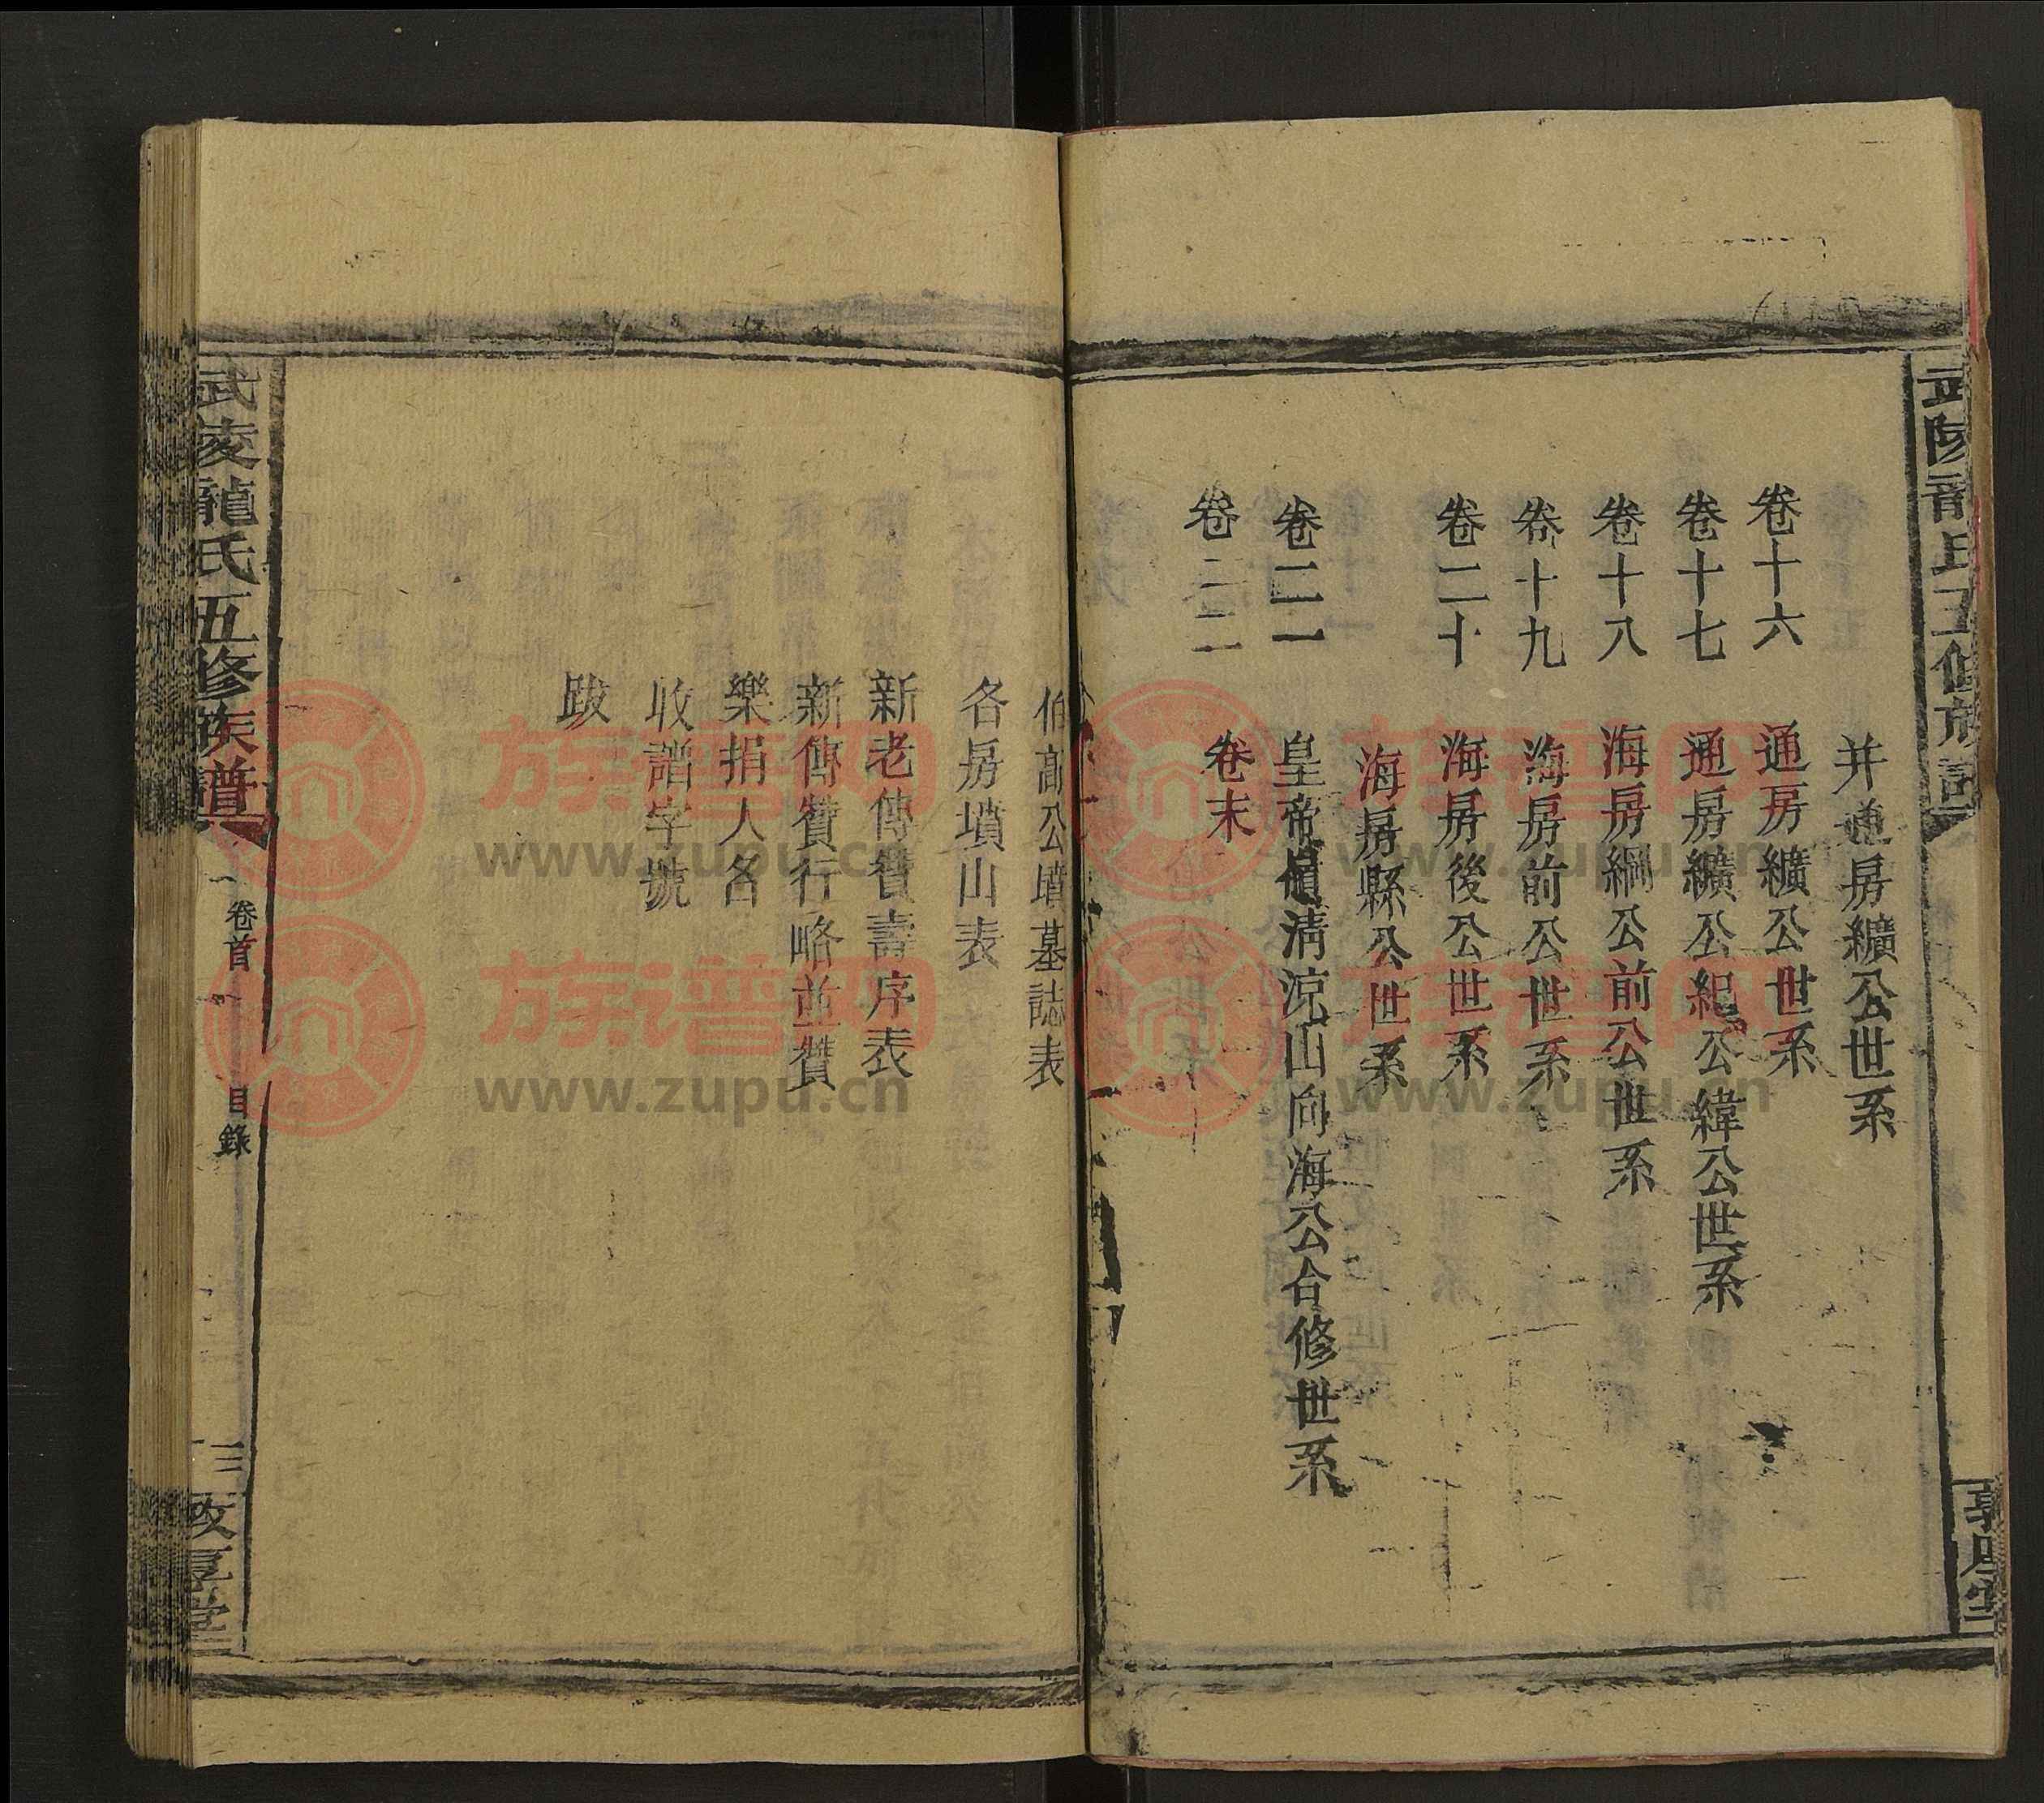 武陵龍氏五修族譜
敦厚堂
并通房纊公世系
卷十六 通房纊公世系
卷十七 通房纊公紀公緯公世系
卷十八 海房綱公前公世系
卷十九 海房前公世系
卷二十 海房後公世系
海房縣公世系
卷二一 皇帝嶺清涼山向海公合修世系
卷二二 卷末
伯高公墳墓誌表
各房墳山表
新老傳贊壽序表
新傳贊行略並贊
樂捐人名
收譜字號
跋
武陵龍氏五修族譜
卷首
目錄
三
敦厚堂
族谱网
www.zupu.cn
族谱网
www.zupu.cn
族谱网
www.zupu.cn
族谱网
www.zupu.cn